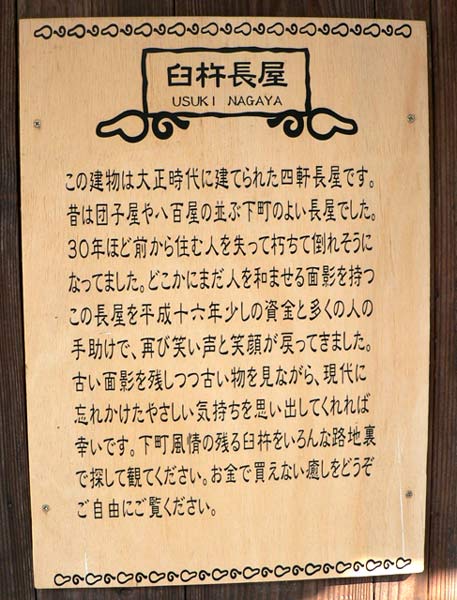 臼杵長屋
USUKI NAGAYA
この建物は大正時代に建てられた四軒長屋です。
昔は団子屋や八百屋の並ぶ下町のよい長屋でした。
30年ほど前から住む人を失って朽ちて倒れそうに
なってました。どこかにまだ人を和ませる面影を持つ
この長屋を平成十六年少しの資金と多くの人の
手助けで、再び笑い声と笑顔が戻ってきました。
古い面影を残しつつ古い物を見ながら、現代に
忘れかけたやさしい気持ちを思い出してくれれば
幸いです。下町風情の残る臼杵をいろんな路地裏
で探して観てください。お金で買えない癒しをどうぞ
ご自由にご覧ください。